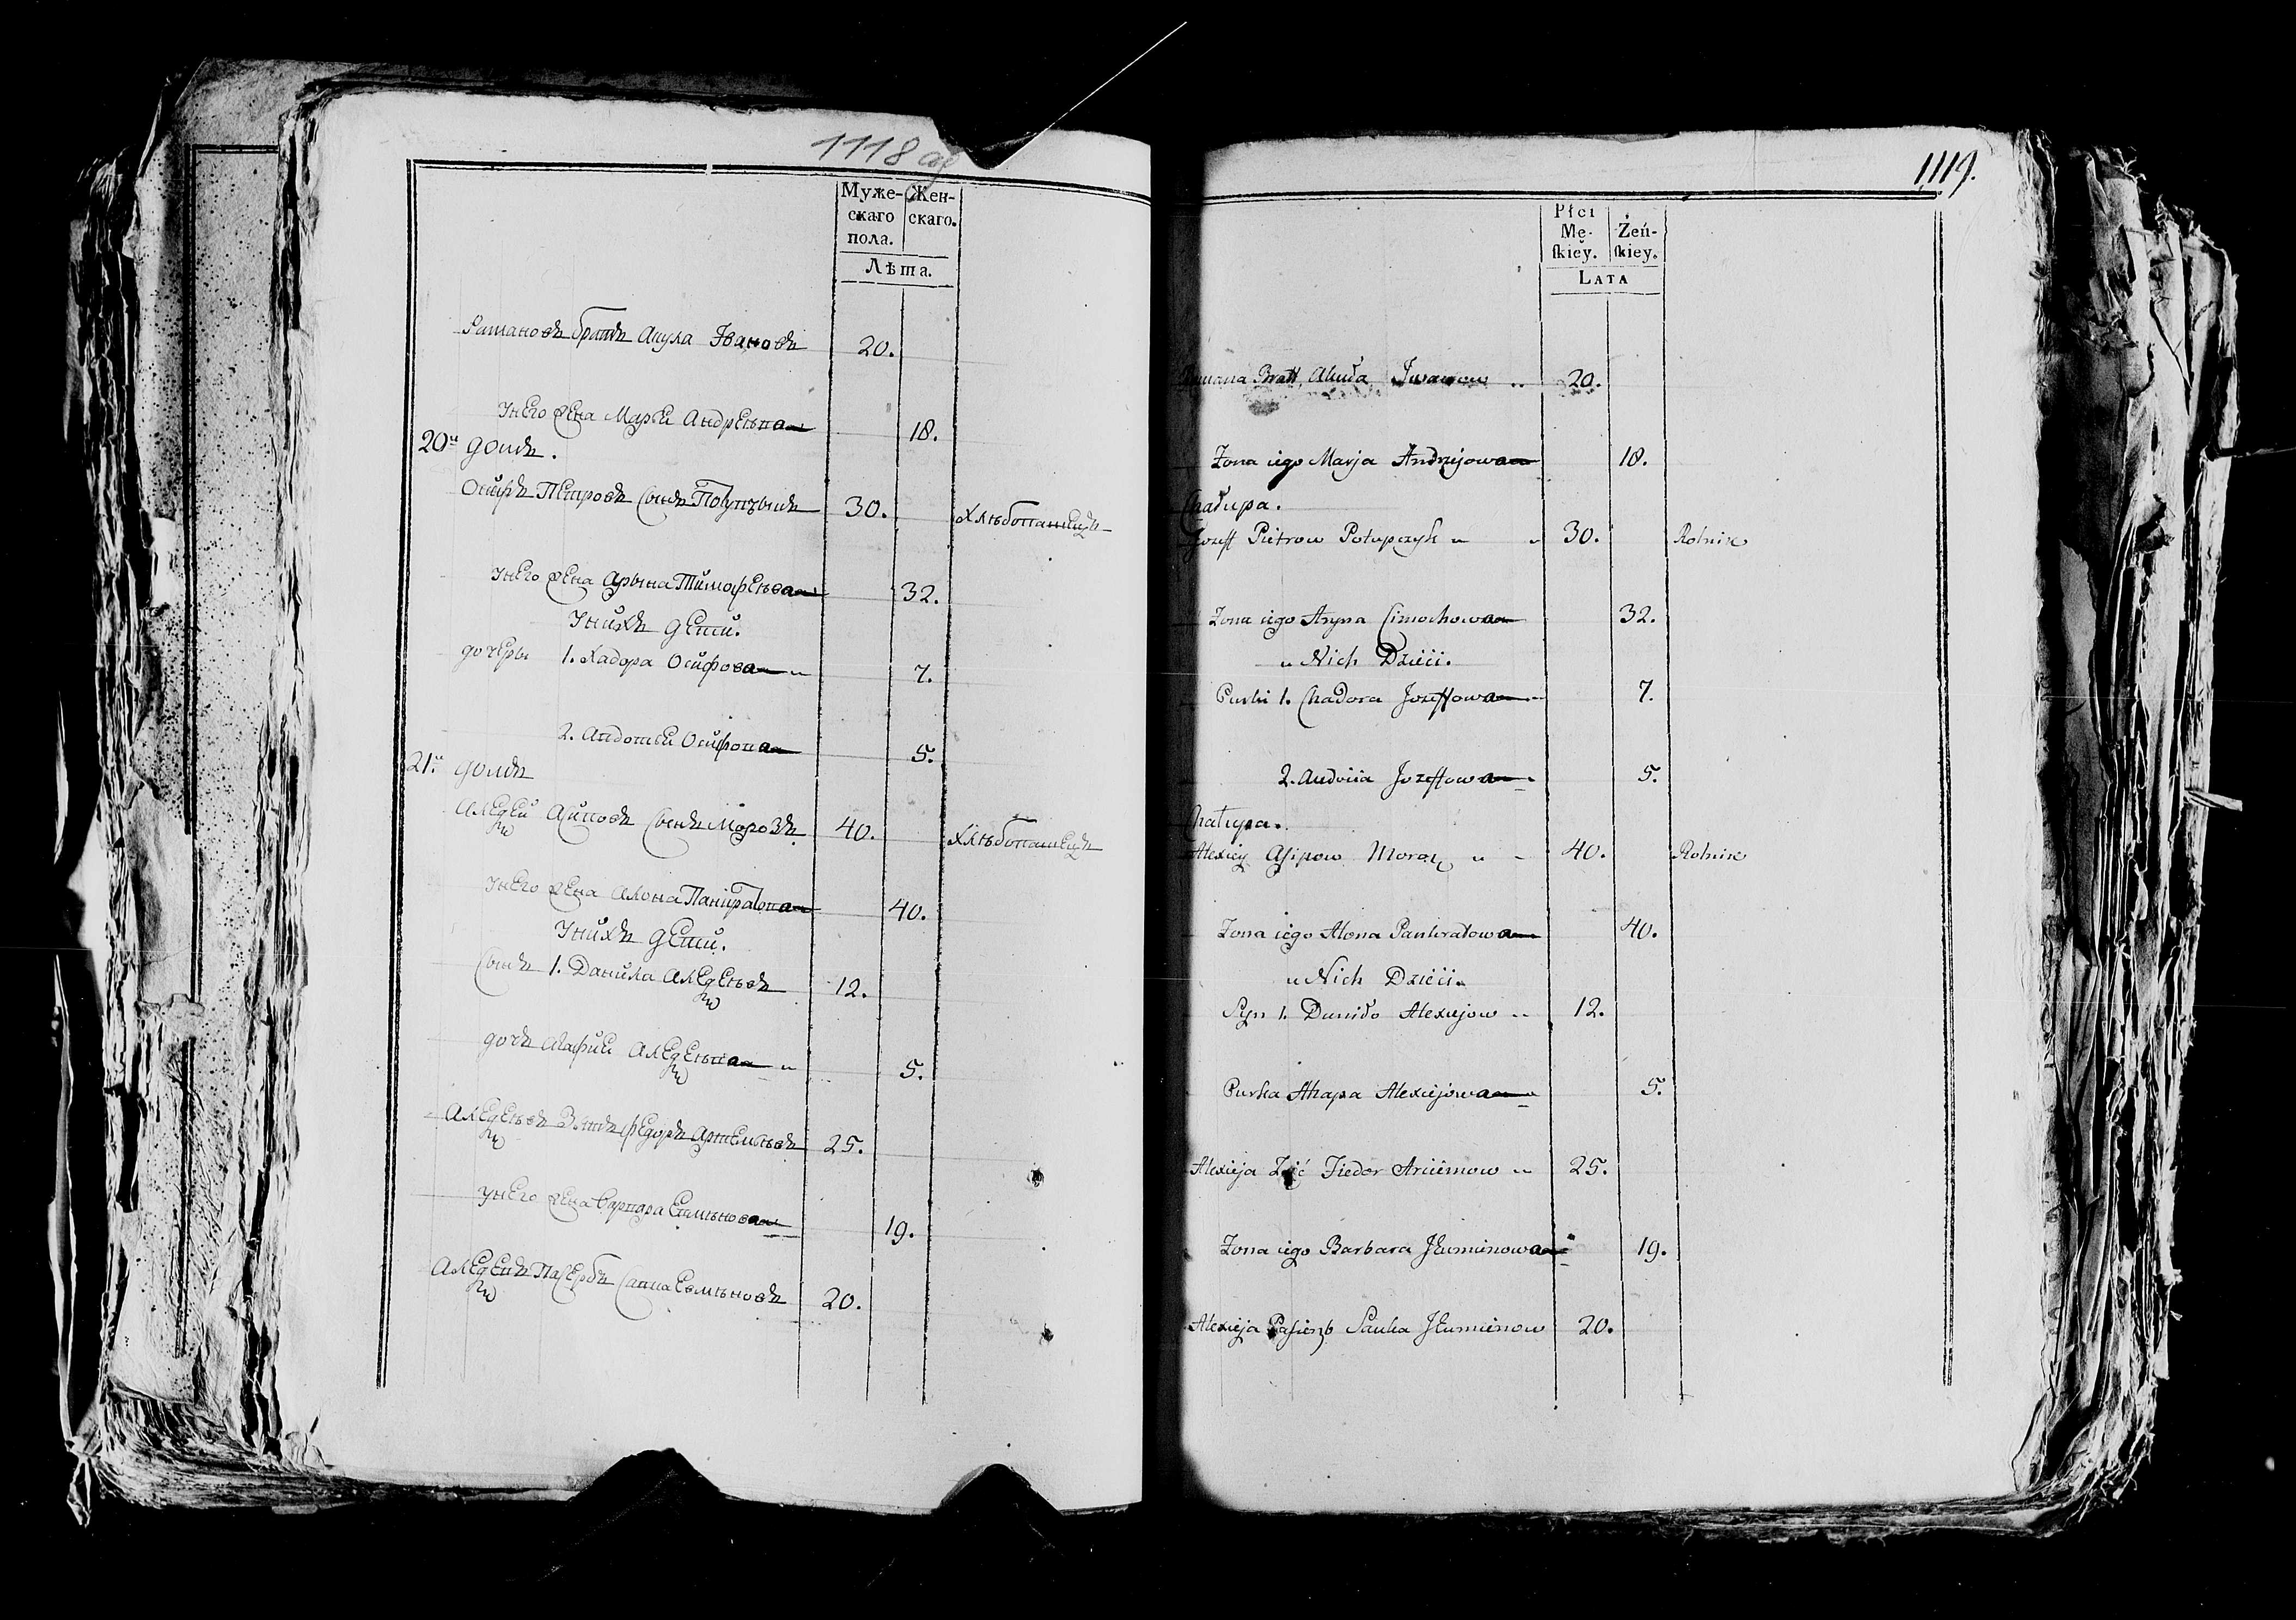 1118 об
Муже-
скаго
пола.
Жен-
скаго.
Лѣта.
Романовъ братъ Акула Івановъ 20.
Унего жена Марьи Андрѣева 18.
20й домъ.
Осифъ Петровъ сынъ Потупчыкъ 30. Хлѣбопашецъ
Унего жена Арына Тимофѣева 32.
Унихъ дети.
дочеры 1. Хадора Осифова 7.
2. Авдотьи Осифова 5.
21й домъ
Алексей Асиповъ сынъ Морозъ 40. Хлѣбопашецъ
Унего жена Алона Панкратова 40.
Унихъ дети.
Сынъ 1. Данила Алексеѣвъ 12.
дочь Агафии Алексеѣва 5.
Алексеѣвъ Зять федоръ Артемьевъ 25.
Унего жена Варвара 19.
Пасербъ Савка 20.
1119.
Płci
Mę-
ſkiey.
Żeń-
ſkiey.
LATA
Romana Bratt, Akuła Iwanow 20.
Zona iego Marja Andrzejowa 18.
Chałupa.
Jozeff Pietrow Potupczyk 30. Rolnik
Zona iego Aryna Cimochowa 32.
u Nich Dzieci.
Curki 1. Chadora Jozeffowa 7.
2. Audocia Jozeffowa 5.
Chałupa.
Alexiey Asipow Moroz 40. Rolnik
Zona iego Alona Pankratowa 40.
u Nich Dzieci.
Syn 1. Daniło Alexiejow 12.
Curka Ahapa Alexiejowa 5.
Alexieja Zięć Fiedor Arciemow 25.
Zona iego Barbara Jłumienowa 19.
Alexieja Pasierzb Sauka Jłumienow 20.